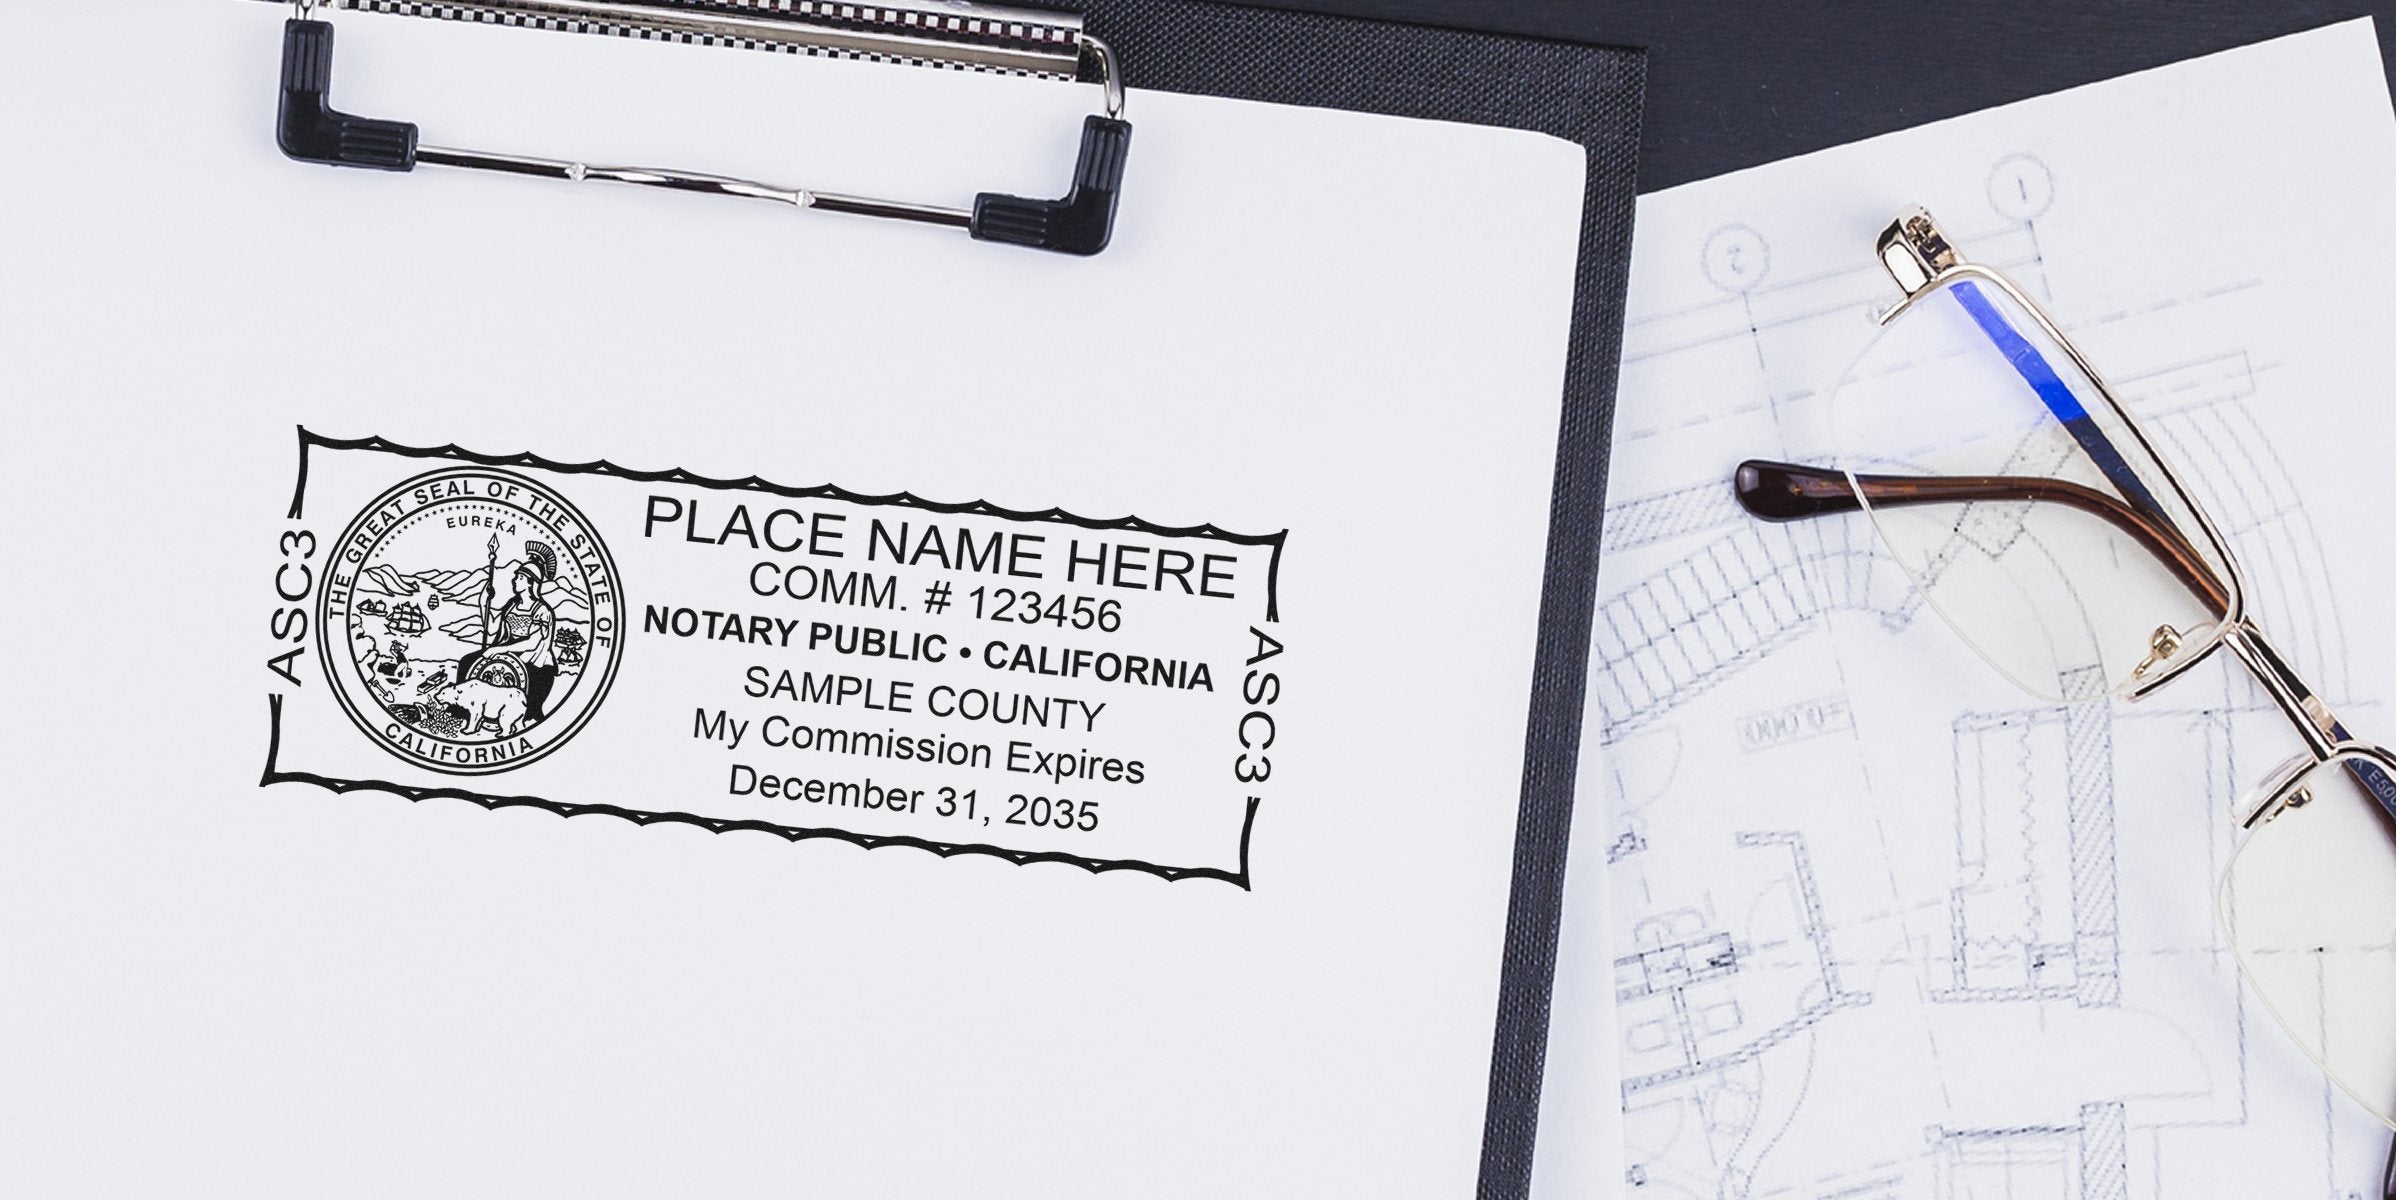 ASC3
THE GREAT SEAL OF THE STATE OF
CALIFORNIA
EUREKA
PLACE NAME HERE
COMM. # 123456
NOTARY PUBLIC • CALIFORNIA
SAMPLE COUNTY
My Commission Expires
December 31, 2035
ASC3
1
2